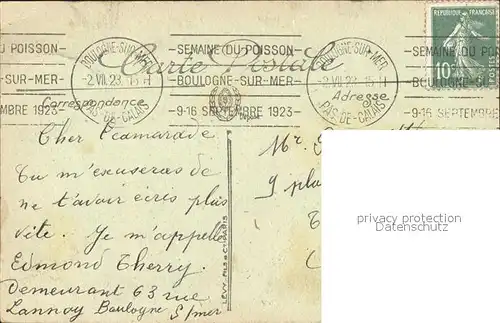 DU POISSON
SEMAINE DU POISSON
SEMAINE DU POISSON
RÉPUBLIQUE FRANÇAISE
BOULOGNE-SUR-MER
BOULOGNE-SUR-MER
Carte Postale
-SUR-MER
-2.VII.23
BOULOGNE-SUR-MER
-2.VII.23 15 H
BOULOGNE-SUR-MER
10
Correspondance
Adresse
MBRE 1923
PAS-DE-CALAIS
9-16 SEPTEMBRE 1923
PAS-DE-CALAIS
9-16 SEPTEMBRE
Cher Camarade
Mr.
Tu m'excuseras de
9 pla
ne t'avoir écris plus
vite. Je m'appelle
Edmond Therry.
Demeurant 63 rue
Lannoy Boulogne s/mer
LÉVY FILS & Cie PARIS
privacy protection
Datenschutz